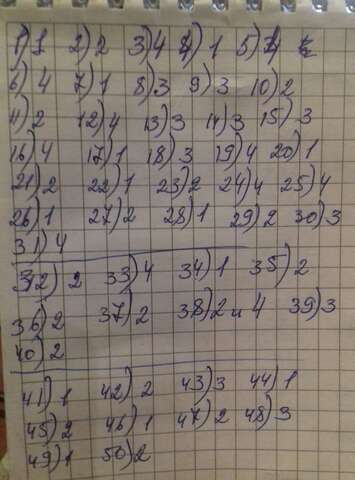 1) 1 2) 2 3) 4 4) 1 5) 4
6) 4 7) 1 8) 3 9) 3 10) 2
11) 2 12) 4 13) 3 14) 3 15) 3
16) 4 17) 1 18) 3 19) 4 20) 1
21) 2 22) 1 23) 2 24) 4 25) 4
26) 1 27) 2 28) 1 29) 2 30) 3
31) 4
32) 2 33) 4 34) 1 35) 2
36) 2 37) 2 38) 2 и 4 39) 3
40) 2
41) 1 42) 2 43) 3 44) 1
45) 2 46) 1 47) 2 48) 3
49) 1 50) 2